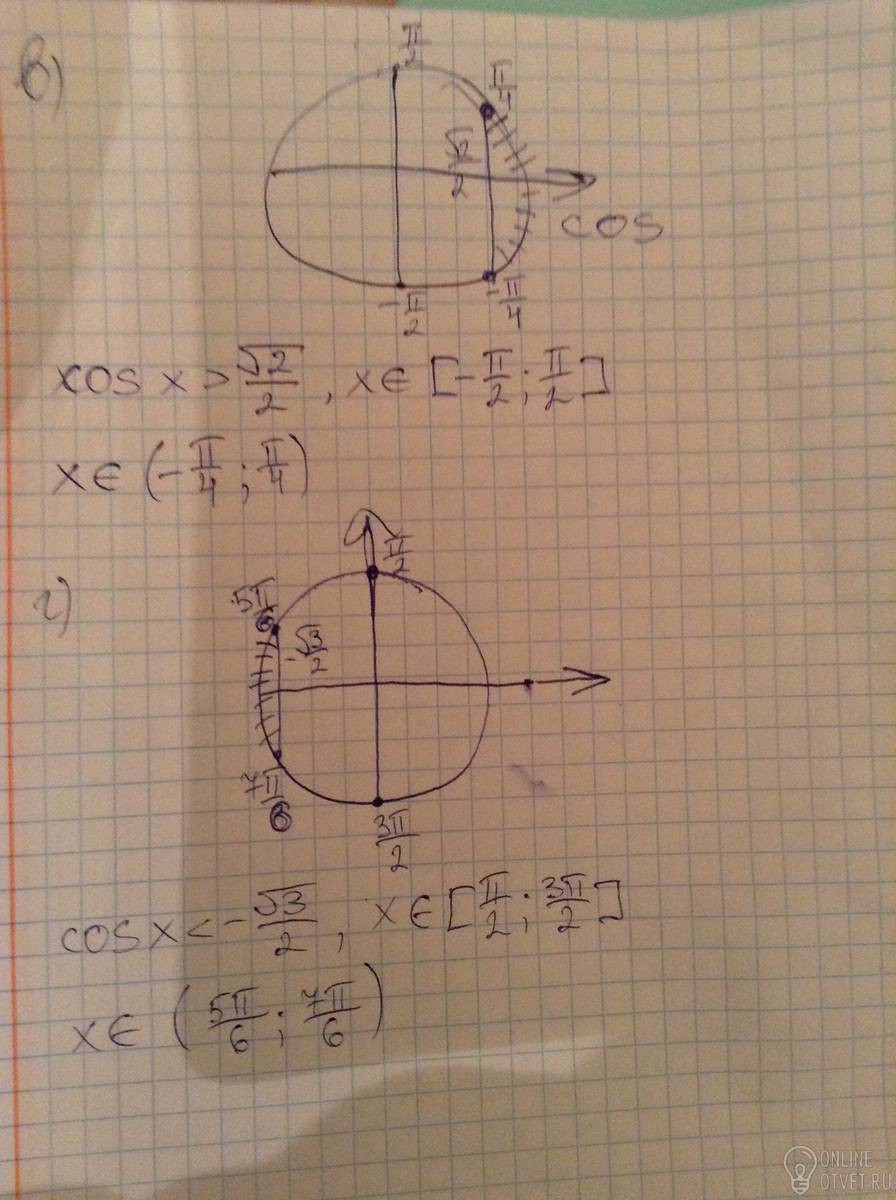 в)
π/2
π/4
√2/2
cos
-π/2
-π/4
cos x > √2/2 , x ∈ [-π/2 ; π/2]
x ∈ (-π/4 ; π/4)
г)
π/2
5π/6
-√3/2
7π/6
3π/2
cos x < -√3/2 , x ∈ [π/2 ; 3π/2]
x ∈ (5π/6 ; 7π/6)
ONLINE
OTVET.RU